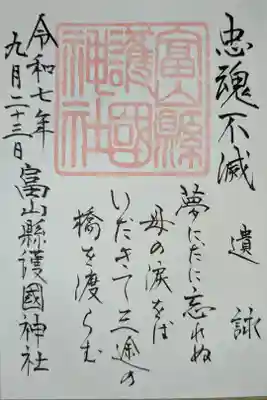 忠魂不滅
遺詠
夢にだに忘れぬ
母の涙をば
いだきて三途の
橋を渡らむ
富山縣護國神社
令和七年
九月二十三日
富山縣護國神社